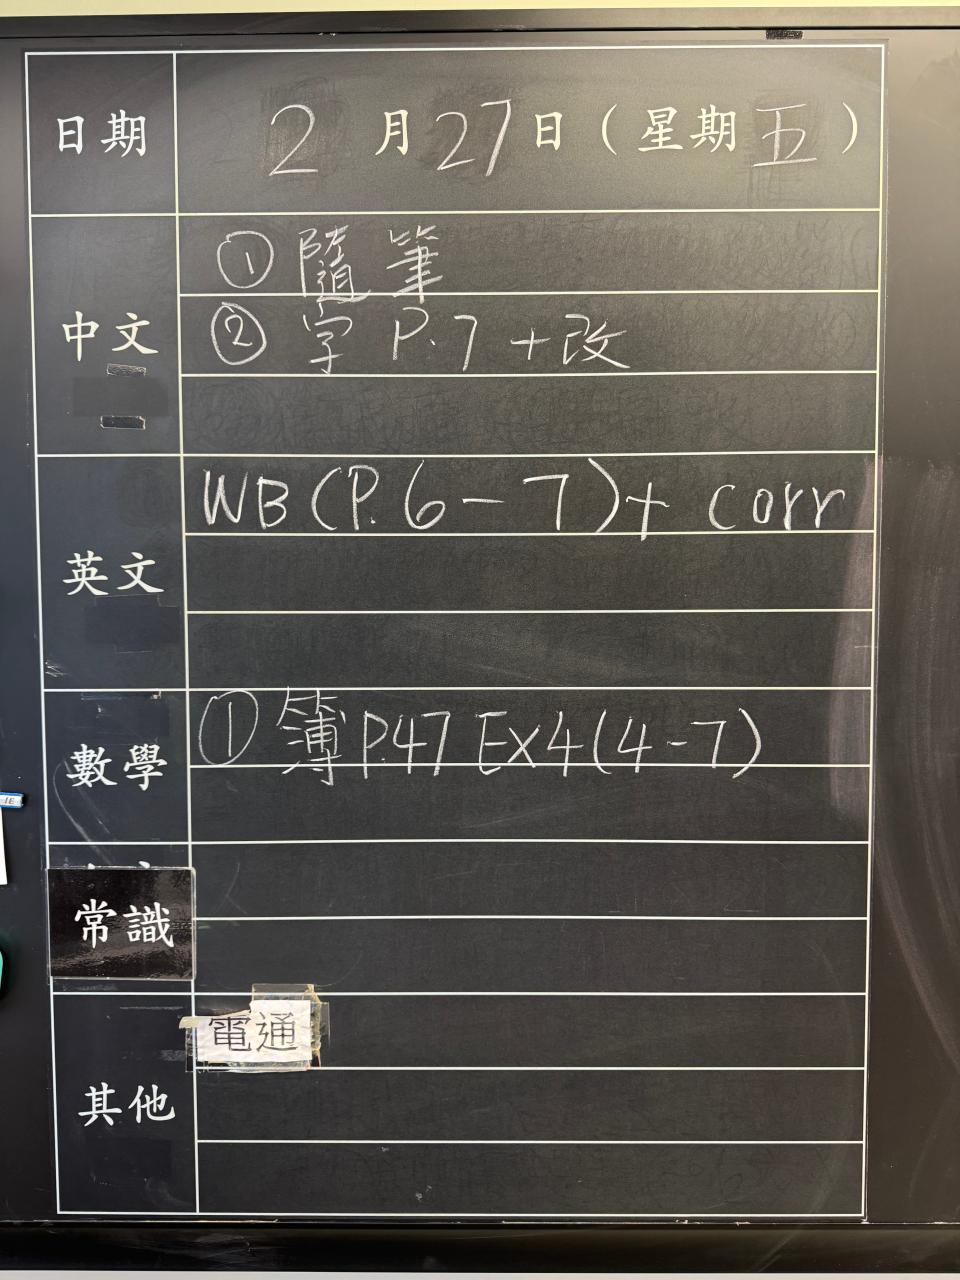 日期 2 月 27 日（星期 五）
中文
① 隨筆
② 字 P.7 + 改
英文
WB (P.6 - 7) + corr
數學
① 簿 P.47 Ex4 (4-7)
常識
其他
電通